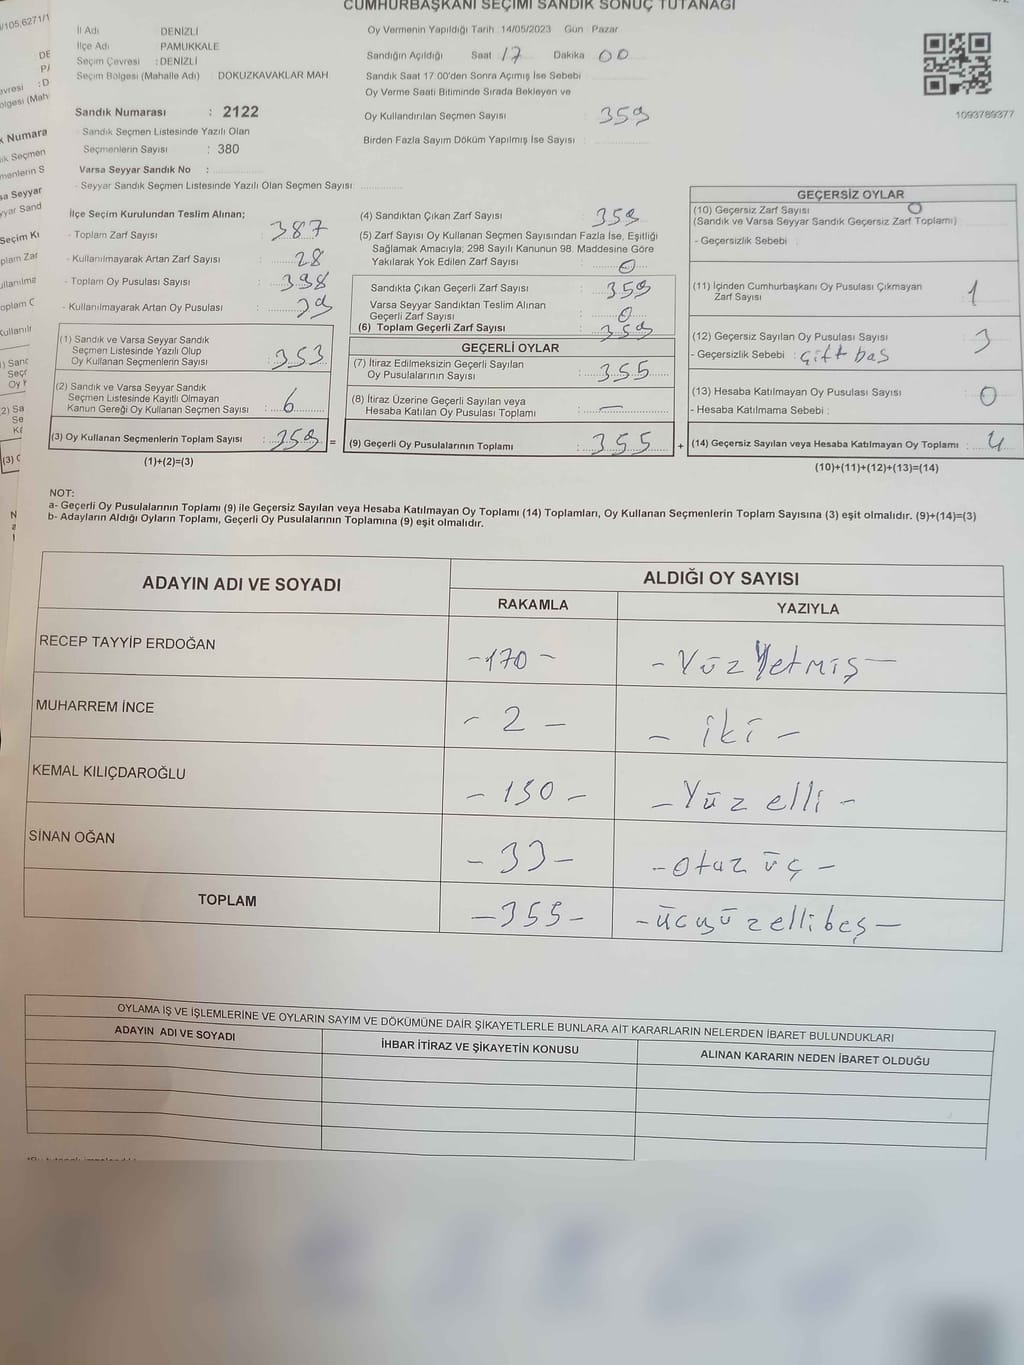 CUMHURBAŞKANI SEÇİMİ SANDIK SONUÇ TUTANAĞI
İl Adı DENİZLİ
İlçe Adı PAMUKKALE
Seçim Çevresi : DENİZLİ
Seçim Bölgesi (Mahalle Adı) : DOKUZKAVAKLAR MAH
Sandık Numarası : 2122
- Sandık Seçmen Listesinde Yazılı Olan
Seçmenlerin Sayısı : 380
Varsa Seyyar Sandık No :
- Seyyar Sandık Seçmen Listesinde Yazılı Olan Seçmen Sayısı:
Oy Vermenin Yapıldığı Tarih : 14/05/2023 Gün Pazar
Sandığın Açıldığı Saat 17 Dakika 00
Sandık Saat 17.00'den Sonra Açımış İse Sebebi
Oy Verme Saati Bitiminde Sırada Bekleyen ve
Oy Kullandırılan Seçmen Sayısı : 359
Birden Fazla Sayım Döküm Yapılmış İse Sayısı :
1093789377
İlçe Seçim Kurulundan Teslim Alınan;
- Toplam Zarf Sayısı : 387
- Kullanılmayarak Artan Zarf Sayısı : 28
- Toplam Oy Pusulası Sayısı : 398
- Kullanılmayarak Artan Oy Pusulası : 39
(1) Sandık ve Varsa Seyyar Sandık
Seçmen Listesinde Yazılı Olup
Oy Kullanan Seçmenlerin Sayısı : 353
(2) Sandık ve Varsa Seyyar Sandık
Seçmen Listesinde Kayıtlı Olmayan
Kanun Gereği Oy Kullanan Seçmen Sayısı : 6
(3) Oy Kullanan Seçmenlerin Toplam Sayısı : 359 =
(1)+(2)=(3)
(4) Sandıktan Çıkan Zarf Sayısı : 359
(5) Zarf Sayısı Oy Kullanan Seçmen Sayısından Fazla İse, Eşitliği
Sağlamak Amacıyla; 298 Sayılı Kanunun 98. Maddesine Göre
Yakılarak Yok Edilen Zarf Sayısı : 0
Sandıkta Çıkan Geçerli Zarf Sayısı : 359
Varsa Seyyar Sandıktan Teslim Alınan
Geçerli Zarf Sayısı : 0
(6) Toplam Geçerli Zarf Sayısı : 359
GEÇERLİ OYLAR
(7) İtiraz Edilmeksizin Geçerli Sayılan
Oy Pusulalarının Sayısı : 355
(8) İtiraz Üzerine Geçerli Sayılan veya
Hesaba Katılan Oy Pusulası Toplamı : —
(9) Geçerli Oy Pusulalarının Toplamı : 355 +
GEÇERSİZ OYLAR
(10) Geçersiz Zarf Sayısı : 0
(Sandık ve Varsa Seyyar Sandık Geçersiz Zarf Toplamı)
- Geçersizlik Sebebi :
(11) İçinden Cumhurbaşkanı Oy Pusulası Çıkmayan
Zarf Sayısı : 1
(12) Geçersiz Sayılan Oy Pusulası Sayısı : 3
- Geçersizlik Sebebi : Çift bas
(13) Hesaba Katılmayan Oy Pusulası Sayısı : 0
- Hesaba Katılmama Sebebi :
(14) Geçersiz Sayılan veya Hesaba Katılmayan Oy Toplamı : 4
(10)+(11)+(12)+(13)=(14)
NOT:
a- Geçerli Oy Pusulalarının Toplamı (9) ile Geçersiz Sayılan veya Hesaba Katılmayan Oy Toplamı (14) Toplamları, Oy Kullanan Seçmenlerin Toplam Sayısına (3) eşit olmalıdır. (9)+(14)=(3)
b- Adayların Aldığı Oyların Toplamı, Geçerli Oy Pusulalarının Toplamına (9) eşit olmalıdır.
ADAYIN ADI VE SOYADI ALDIĞI OY SAYISI
RAKAMLA YAZIYLA
RECEP TAYYİP ERDOĞAN -170- -Yüz Yetmiş-
MUHARREM İNCE -2- -iki-
KEMAL KILIÇDAROĞLU -150- -Yüz elli-
SİNAN OĞAN -33- -otuz üç-
TOPLAM -355- -üçyüzellibeş-
OYLAMA İŞ VE İŞLEMLERİNE VE OYLARIN SAYIM VE DÖKÜMÜNE DAİR ŞİKAYETLERLE BUNLARA AİT KARARLARIN NELERDEN İBARET BULUNDUKLARI
ADAYIN ADI VE SOYADI İHBAR İTİRAZ VE ŞİKAYETİN KONUSU ALINAN KARARIN NEDEN İBARET OLDUĞU